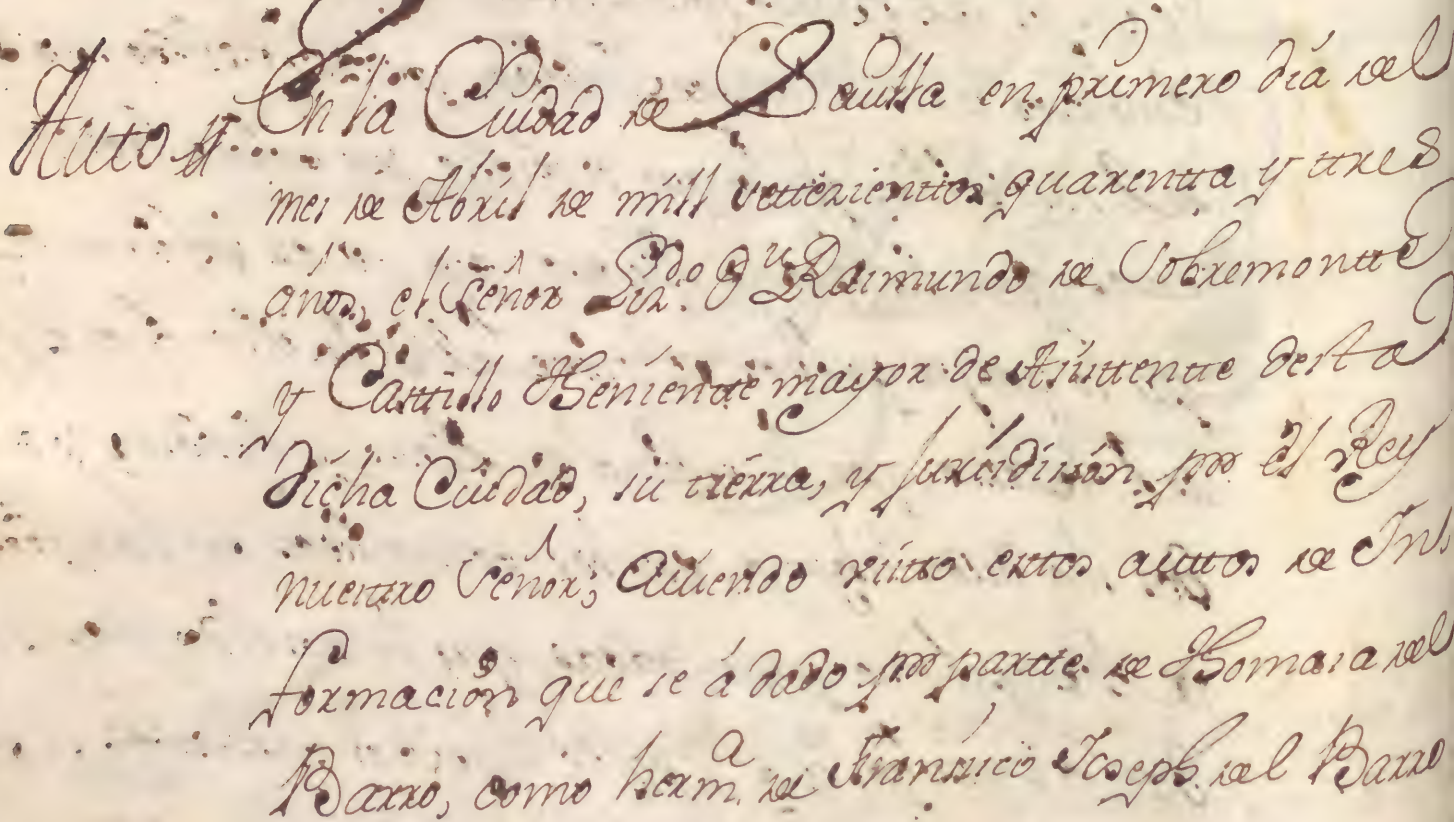 Auto En la Ciudad de Sevilla en primero dia del
mes de Abril de mill settezientos quarenta y ttres
años, el Señor Liz.do Dn Raimundo de Sobremontte
y Casttillo Theniente mayor de Asisttentte desta
dicha Ciudad, su tierra, y Jurisdizión por el Rey
nuesttro Señor; Aviendo visto esttos auttos de In
formación que se á dado por partte de Thomasa del
Barro, como herm.a de Franzisco Joseph del Barro